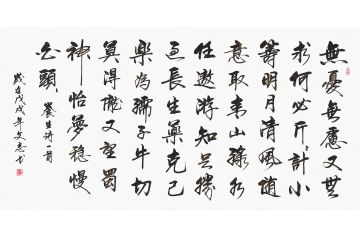 無憂無慮又无
求何必斤斤計小
籌明月清風隨
意取青山綠水
任遨游知足勝
過長生藥克己
樂為孺子牛切
莫得隴又望蜀
神怡夢穩慢
白頭 養生詩一首
歲在戊戌年文志书